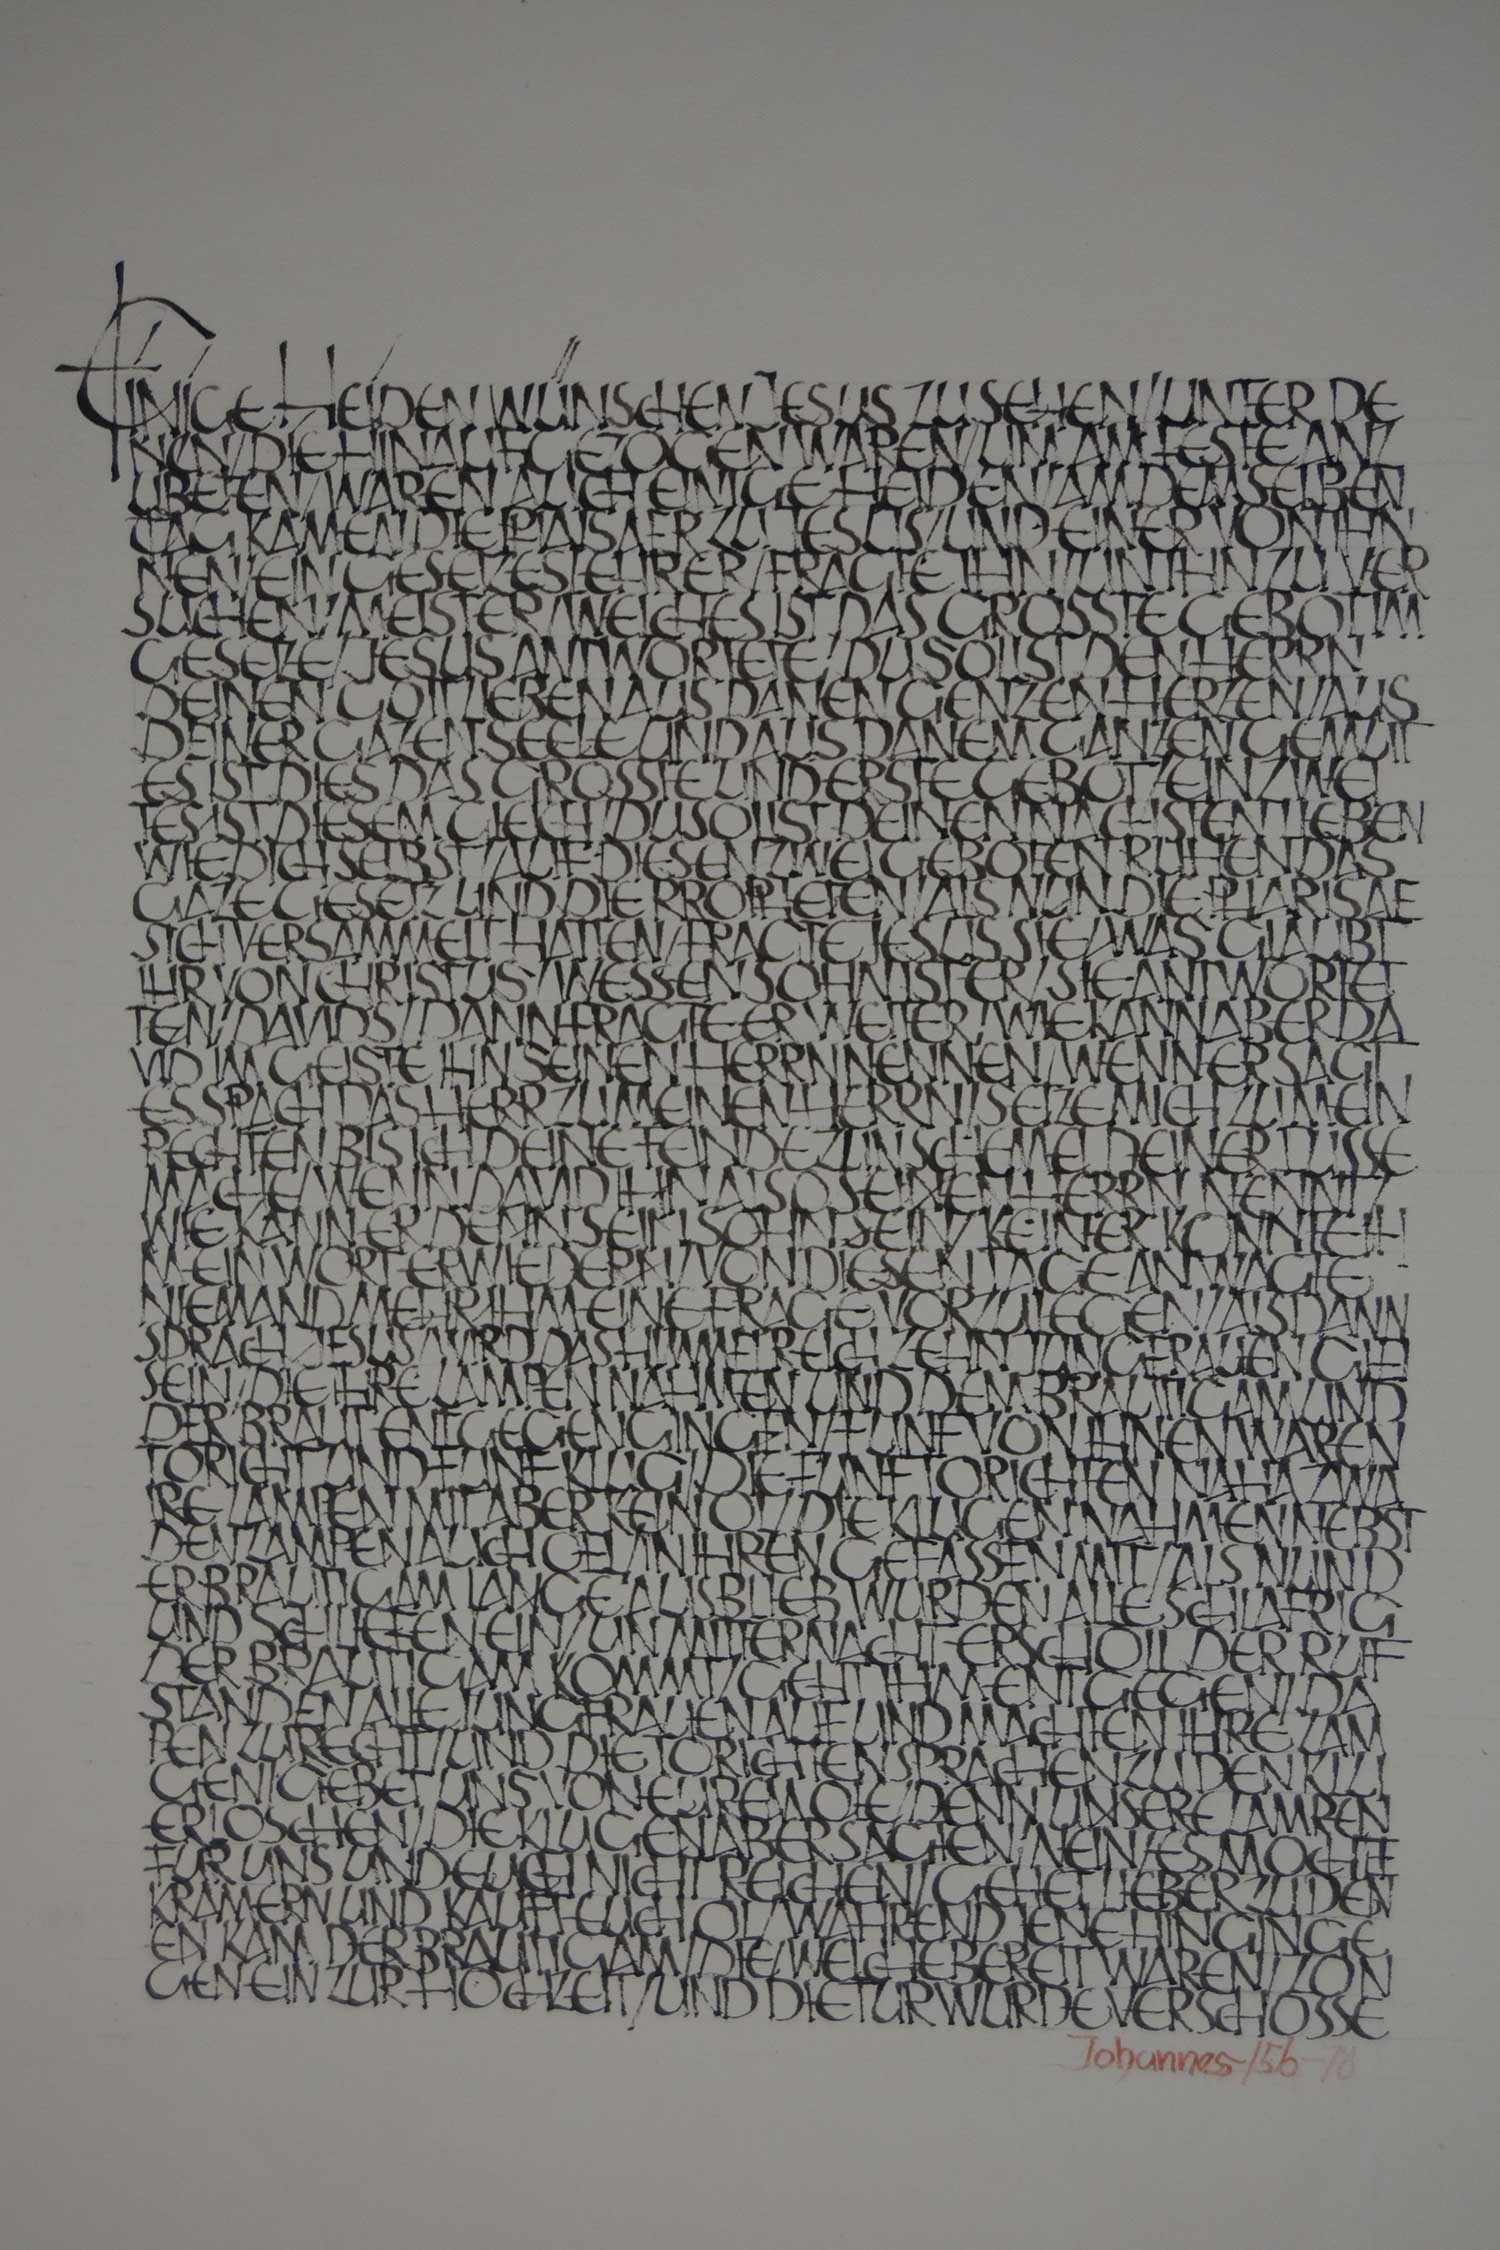 EINIGE HEIDEN WÜNSCHEN JESUS ZU SEHEN/UNTER DE
NEN/DIE HINAUFGEZOGEN WAREN/UM AM FESTE ANZ
UBETEN/WAREN AUCH EINIGE HEIDEN/AM DEMSELBEN
TAG KAMEN DIE ZU JESUS/UND EINER VON IHN
NEN/EIN GESETZESLEHRER/FRAGTE IHN/UN IHN ZU VER
SUCHEN/MEISTER/WELCHES IST DAS GROSSTE GEBOT IM
GESETZE/JESUS ANTWORTETE/DU SOLLST DEN HERRN
DEINEN GOTT LIEBEN AUS DANEN GENZEN HERZEN/AUS
DEINER GAZEN SEELE UND AUS DANEM GANZEN GEMUT
ES IST DIES DAS GROSSTE UND ERSTE GEBOT/EIN ZWEI
TES IST DIESEM GLECH/DU SOLLST DEINEN NACHSTEN LIEBEN
WIE DICH SELBST/AUF DIESEN ZWEI GEBOTEN RUHEN DAS
GAZE GESETZ UND DIE PROPHETEN/ALS NUN DIE PHARISAE
SICH VERSAMMELT HATTEN/FRAGTE JESUS SIE/WAS GLAUBT
IHR VON CHRISTUS/WESSEN SOHN IST ER/SIE ANTWORTET
TEN/DAVIDS/DANN FRAGTE ER WEITER/WIE KANN ABER DA
VID IM GEISTE IHN SEINEN HERRN NENNEN/WENN ER SAGT
ES SPACH DAS HERR ZU MEINEN HERRN/SETZE MICH ZU MEIN
RECHTEN BIS ICH DEINE FEINDE ZUN SCHEMEL DEINER FUSSE
MACHE/WENN DAVID IHN ALSO SEINEN HERRN NENNT/
WIE KANN ER DENN SEIN SOHN SEIN/KEINER KONNTE IH
M EIN WORT ERWIEDERN/VON DIESEN TAGE AN WAGTE
NIEMAND MEHR IHM EINE FRAGE VORZULEGEN/ALSDANN
SPRACH JESUS/WIRD DAS HIMMELREICH ZEHN JUNGFRAUEN GLEI
SEIN/DIE IHRE LAMPEN NAHMEN UND DEM BRAUTIGAM UND
DER BRAUT ENTGEGEN GINGEN/FUNF VON IHNEN WAREN
TORICHT/UND FUNF KLUG/DIE FUNF TORICHTEN ZWA
IRE LAMPEN MIT ABER KEIN OL/DIE KLUGEN NAHMEN NEBST
DEN LAMPEN AUCH OEL/IN IHREN GEFASSEN MIT/ALS NUN D
ER BRAUTIGAM LANGE AUSBLIEB WURDEN ALLE SCHLAFRIG
UND SCHLIEFEN EIN/UN MITTERNACHT ERSCHOLL DER RUF
DER BRAUTIGAM KOMMT/GEHT IHM ENTGEGEN/DA
STANDEN ALLE JUNGFRAUEN AUF UND MACHTEN IHRE LAM
PEN ZURECHT/UND DIE TORICHTEN SPRACHEN ZU DEN KLU
GEN/GEBET UNS VON EUREM OLE/DENN UNSERE LAMPEN
ERLOSCHEN/DIE KLUGEN ABER SAGTEN/NEIN/ES MOCHTE
FUR UNS UND EUCH NICHT REICHEN/GEHET LIEBER ZU DEN
KRAMERN UND KAUFT EUCH OL/WAHREND JENE HINGINGE
EN KAM DER BRAUTIGAM/DIE/WELCHE BEREIT WAREN/ZON
GEN EIN ZUR HOCHZEIT/UND DIE TUR WURDE VERSCHOSSE
Johannes-156-78